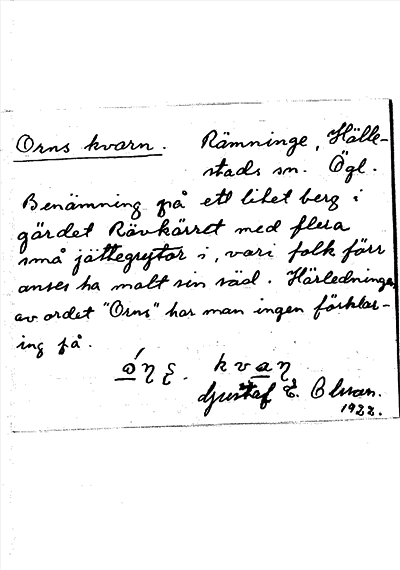 Orns kvarn. Rämninge, Hälle-
stads sn. Ögl.
Benämning på ett litet berg i
gärdet Rävkärret med flera
små jättegrytor i, vari folk förr
anses ha malt sin säd. Härledningen
av ordet "Orns" har man ingen förklar-
ing på.
Gustaf E. Olsson.
1922.